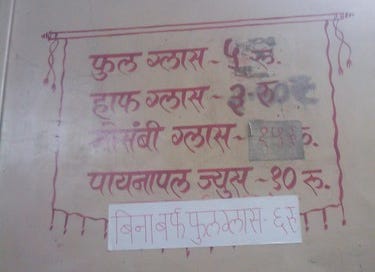 फुल ग्लास - ५ रू.
हाफ ग्लास - ३ रू
मोसंबी ग्लास - रू.
पायनापल ज्युस - १० रू.
बिना बर्फ फुल ग्लास - ६ रू